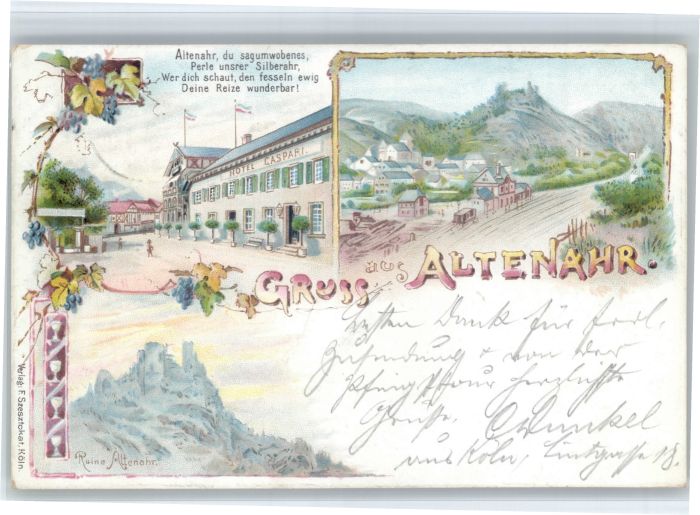 Altenahr, du sagumwobenes,
Perle unsrer Silberahr,
Wer dich schaut, den fesseln ewig
Deine Reize wunderbar!
HOTEL CASPARI.
GRUSS aus ALTENAHR.
Besten Dank für frdl.
Zusendung + von der
Pfingsttour herzlichste
Grüsse CWunkel
aus Köln, Lintgasse 18.
Ruine Altenahr.
Verlag: F. Szesztokat, Köln.